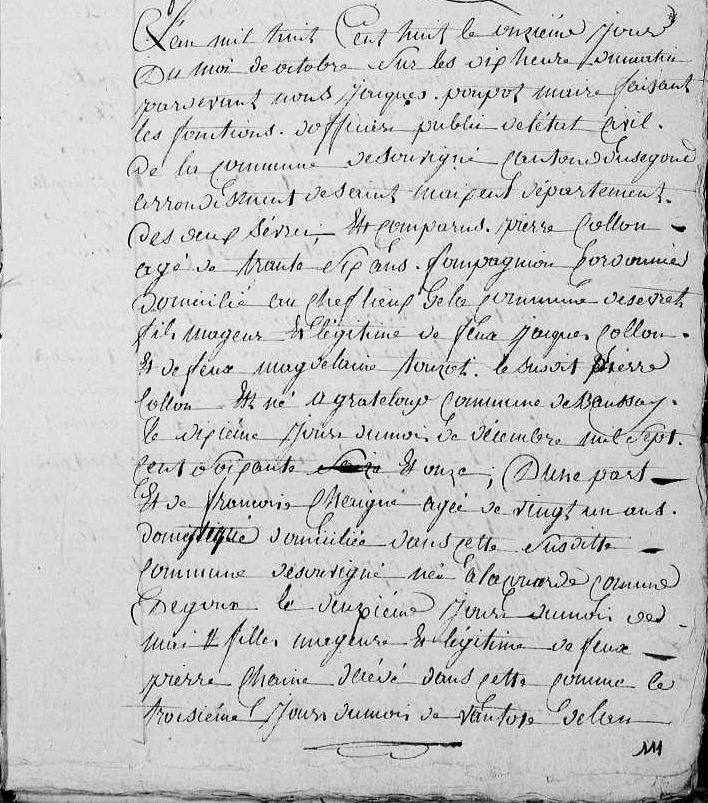 L'an mil huit Cent huit le onzième jour
Du moi de octobre sur les dix heure du matin
pardevant nous Jacques poupot maire faisant
les fonctions d'officier public de létat Civil.
De la Commune desouvigné Canton densegond
arrondissment desaint maixent département.
des deux Sévre; Est Comparus. pierre Collon
agé de trante six ans. Compagnion Cordonnier
domicilié au Cheflieux dela Commune desecret
fils mageur Et légitime de feux Jacques Collon.
Et de feux magdelaine touzot. le susdit pierre
Collon Est né a grateloup Commune de Baussay.
le dixième Jour dumois de décembre mil sept.
Cent soixante Et onze; D'une part
Et de francoise agée de vingt un ans.
domestique domiciliée dans cette susditte
Commune desouvigné née a la Comune
Degoux le deuxième Jour dumois de
mai fille mageure Et légitime de feux
pierre décédé dans cette Comune le
troisième Jour dumois de vantose delan